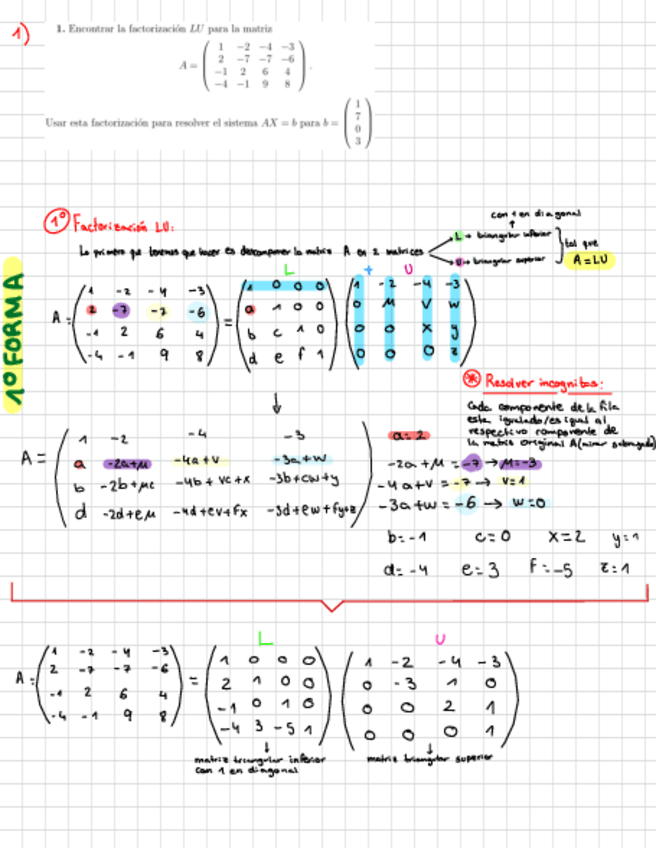 1)
1. Encontrar la factorización LU para la matriz
A = ( 1 -2 -4 -3
2 -7 -7 -6
-1 2 6 4
-4 -1 9 8 ) .
Usar esta factorización para resolver el sistema AX = b para b = ( 1
7
0
3 )
1º FORMA
1º Factorización LU:
Lo primero que tenemos que hacer es descomponer la matriz A en 2 matrices
con 1 en diagonal
L → triangular inferior
U → triangular superior
tal que
A = LU
L U
A = ( 1 -2 -4 -3
2 -7 -7 -6
-1 2 6 4
-4 -1 9 8 ) = ( 1 0 0 0
a 1 0 0
b c 1 0
d e f 1 ) ( 1 -2 -4 -3
0 M V W
0 0 X y
0 0 0 z )
↓
A = ( 1 -2 -4 -3
a -2a+M -4a+V -3a+W
b -2b+Mc -4b+Vc+X -3b+cW+y
d -2d+eM -4d+eV+fX -3d+eW+fy+z )
* Resolver incognitas:
Cada componente de la fila
esta igualado/es igual al
respectivo componente de
la matriz original A (mirar subrayado)
a = 2
-2a+M = -7 → M=-3
-4a+V = -7 → V=1
-3a+W = -6 → W=0
b=-1 c=0 X=2 y=1
d=-4 e=3 f=-5 z=1
L U
A = ( 1 -2 -4 -3
2 -7 -7 -6
-1 2 6 4
-4 -1 9 8 ) = ( 1 0 0 0
2 1 0 0
-1 0 1 0
-4 3 -5 1 ) ( 1 -2 -4 -3
0 -3 1 0
0 0 2 1
0 0 0 1 )
matriz triangular inferior
con 1 en diagonal
matriz triangular superior